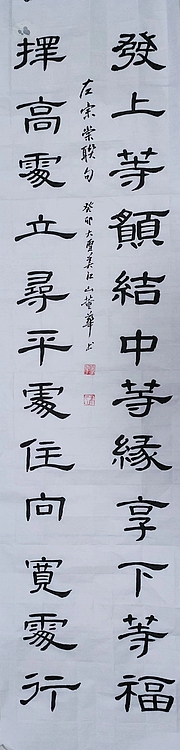 發上等願結中等緣享下等福
擇高處立尋平處住向寬處行
左宗棠聯句
癸卯大雪美江山董華上